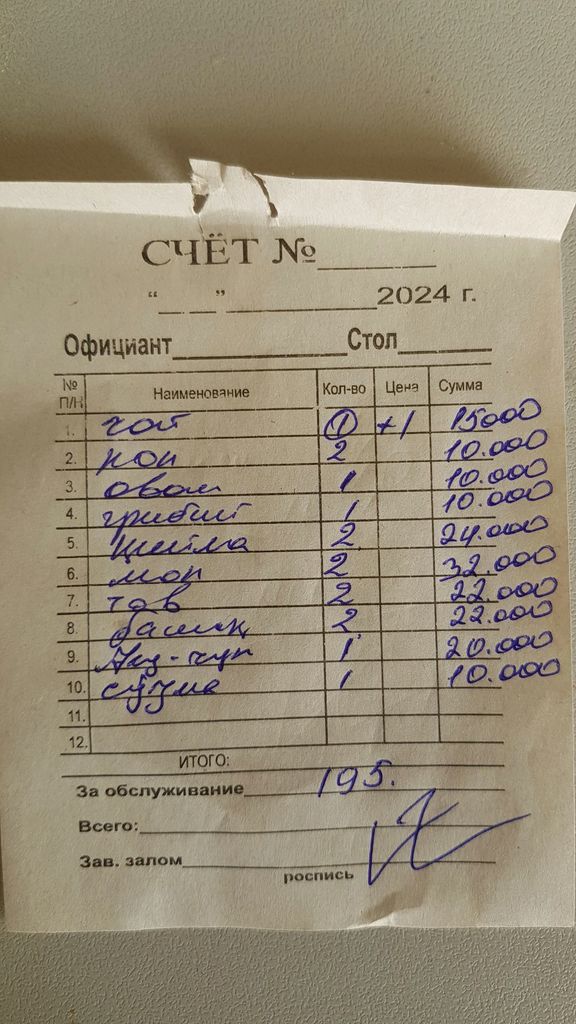 СЧЁТ №________
“__ __” ____________2024 г.
Официант________________Стол________
№ П/Н Наименование Кол-во Цена Сумма
1. чой 1 +1 15000
2. нон 2 10.000
3. овощ 1 10.000
4. грибы 1 10.000
5. 2 24.000
6. 2 32.000
7. тов 2 22.000
8. балиқ 2 22.000
9. Ачу-чук 1 20.000
10. сузма 1 10.000
11.
12.
ИТОГО:
За обслуживание 195.
Всего:
Зав. залом
роспись